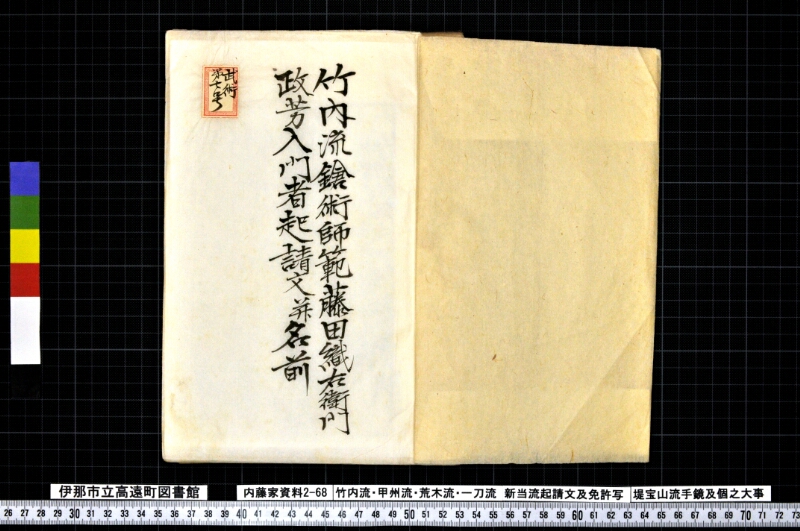 竹内流鎗術師範藤田織右衛門
政芳入門者起請文并名前
武術
第七号
伊那市立高遠町図書館
内藤家資料2-68
竹内流・甲州流・荒木流・一刀流 新当流起請文及免許写
堤宝山流手鏡及個之大事
26 27 28 29 30 31 32 33 34 35 36 37 38 39 40 41 42 43 44 45 46 47 48 49 50 51 52 53 54 55 56 57 58 59 60 61 62 63 64 65 66 67 68 69 70 71 72 73